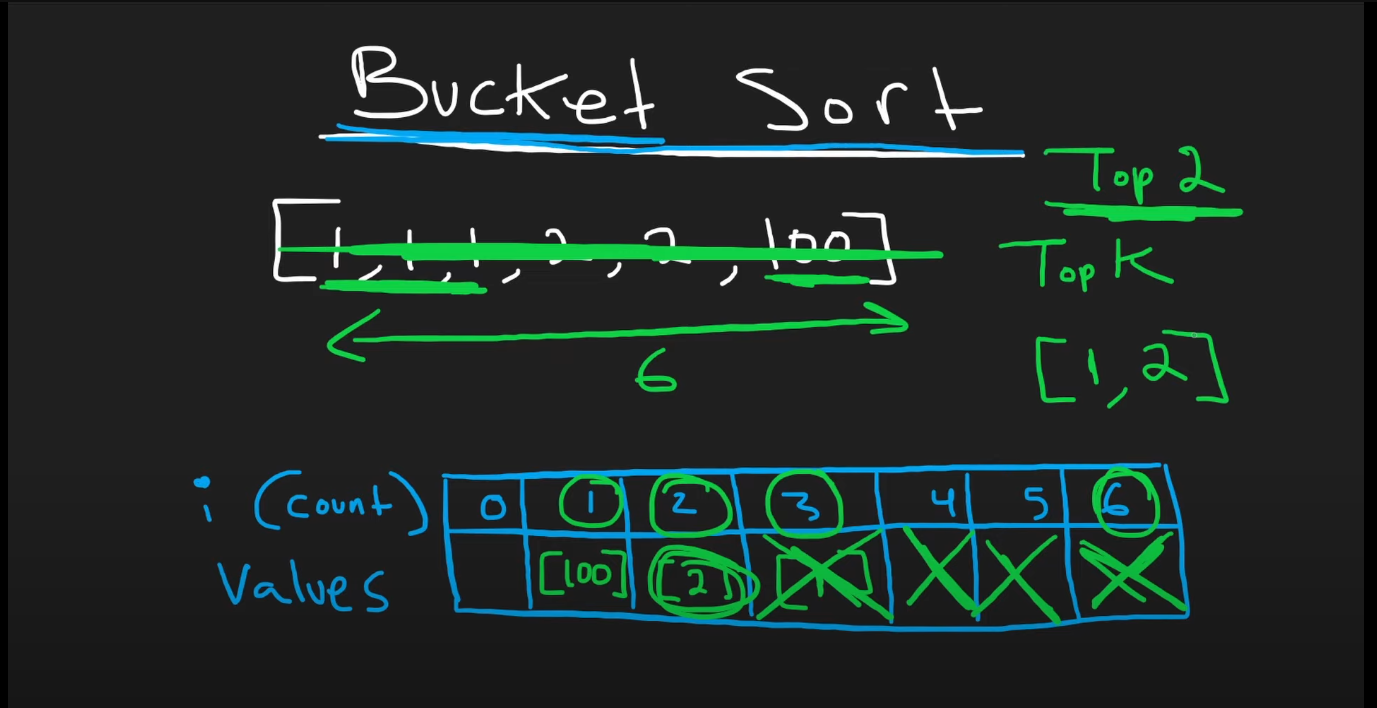 Bucket Sort
Top 2
[1, 1, 1, 2, 2, 100]
Top K
6
[1, 2]
i (count) 0 1 2 3 4 5 6
Values [100] [2] [1]